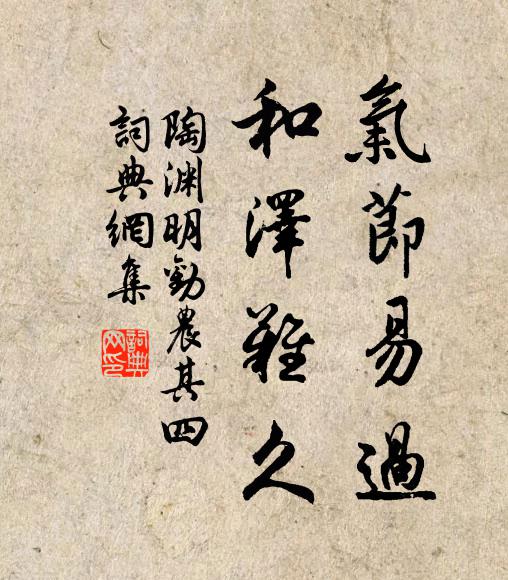 氣節易過
和澤難久
陶淵明勸農其四
詞典網集
詞典
网印